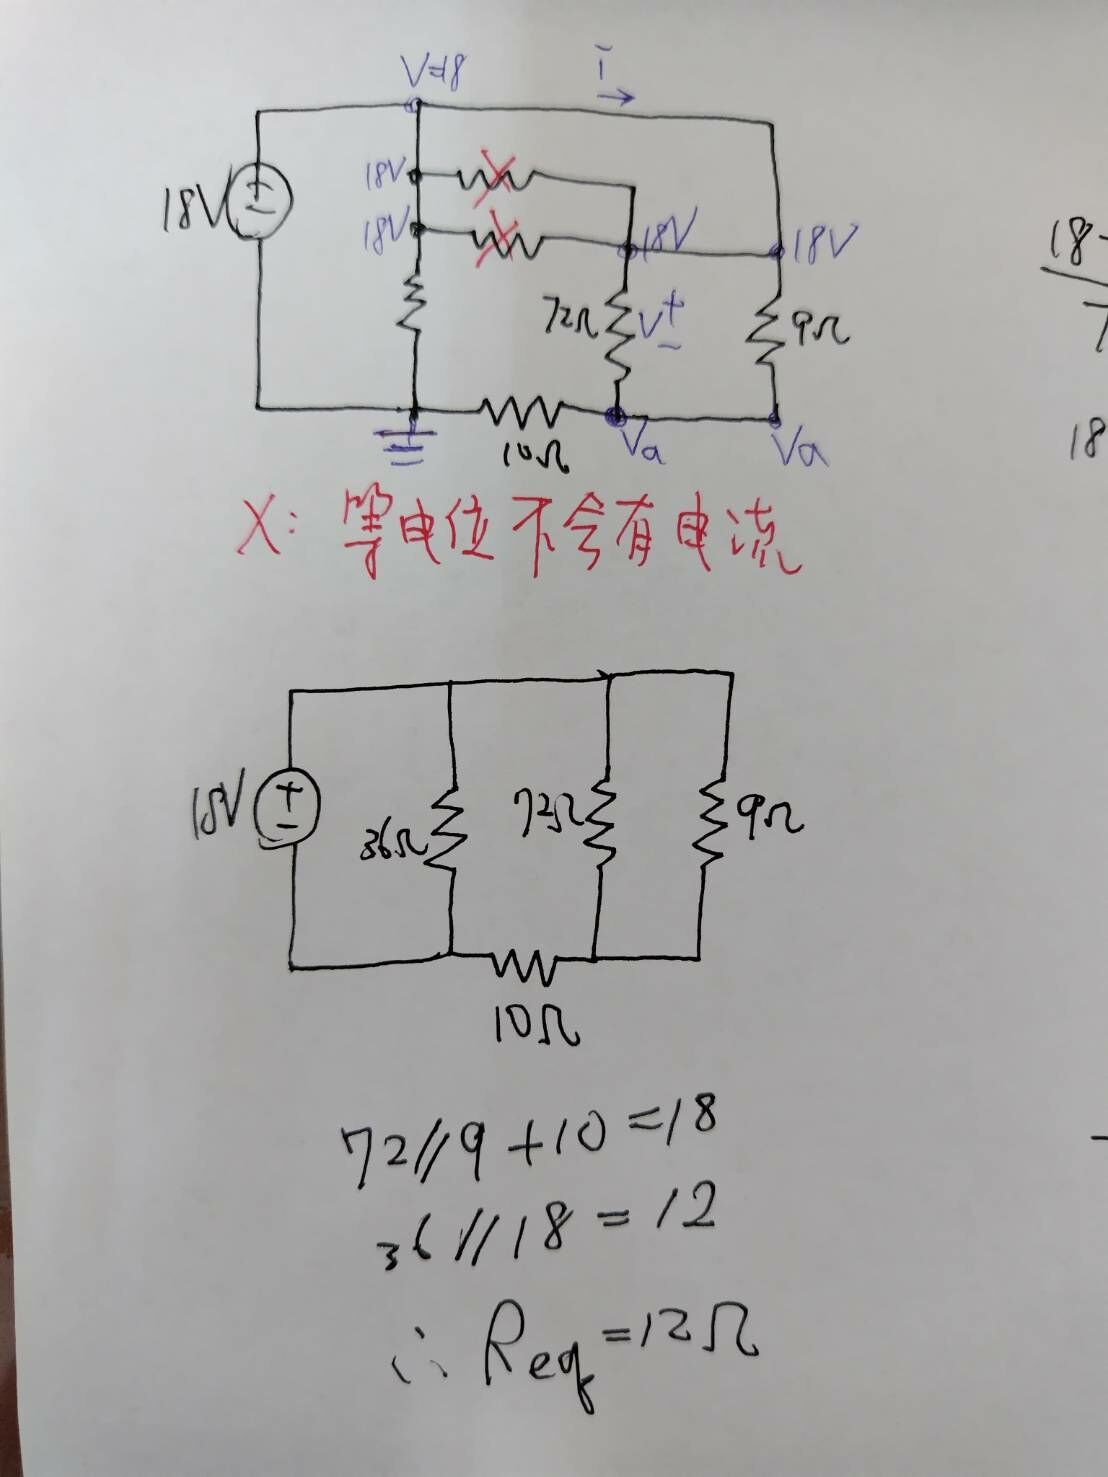 V=18
i
18V
18V
18V
18V
18V
72Ω
V
+
-
9Ω
10Ω
Va
Va
18-
7
18
X: 等电位不会有电流
18V
36Ω
72Ω
9Ω
10Ω
72//9+10=18
36//18=12
∴ Req=12Ω